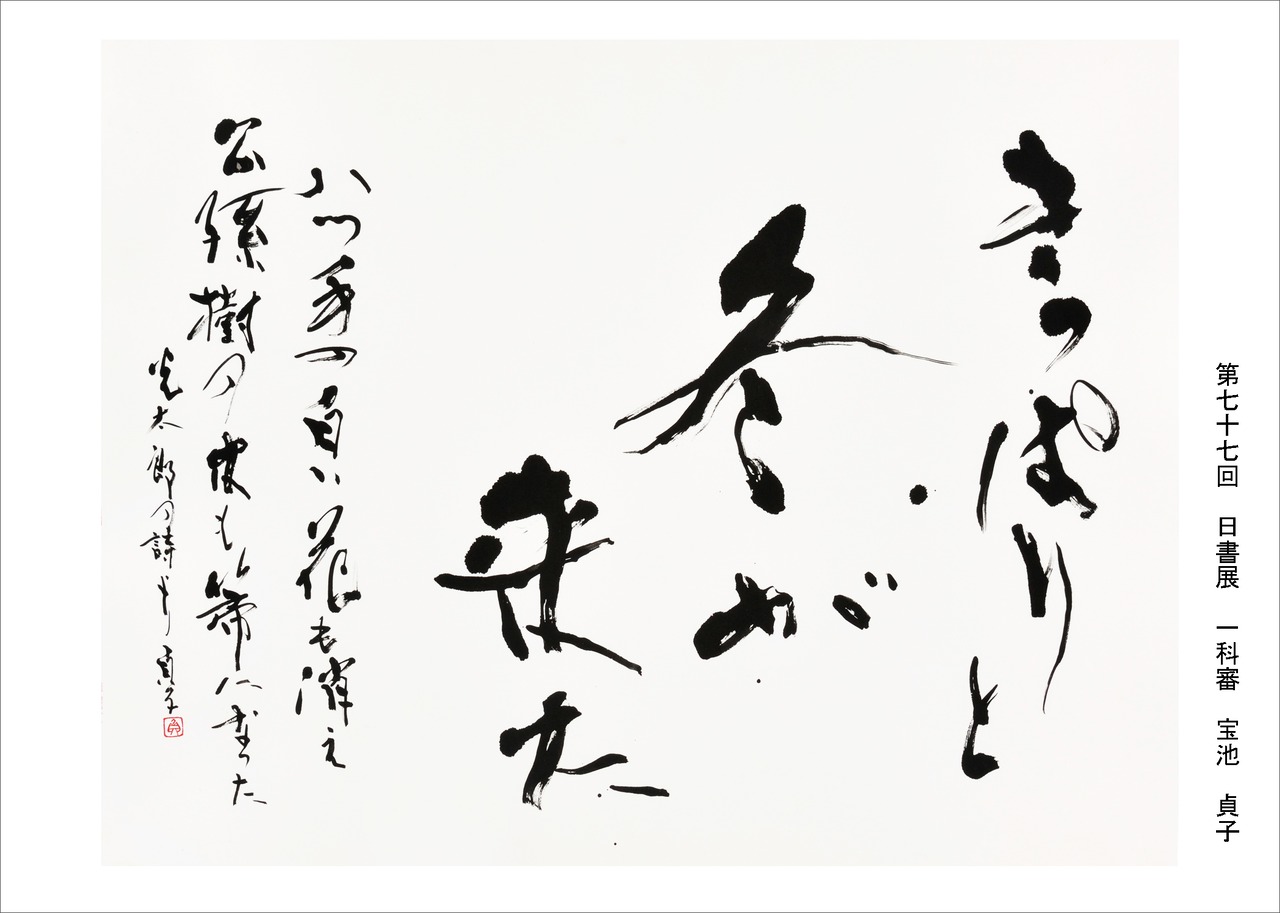 第七十七回 日書展 一科審 宝池 貞子
きっぱりと
冬が
来た
八つ手の白い花も消え
公孫樹の木も箒になった
光太郎の詩より 貞子